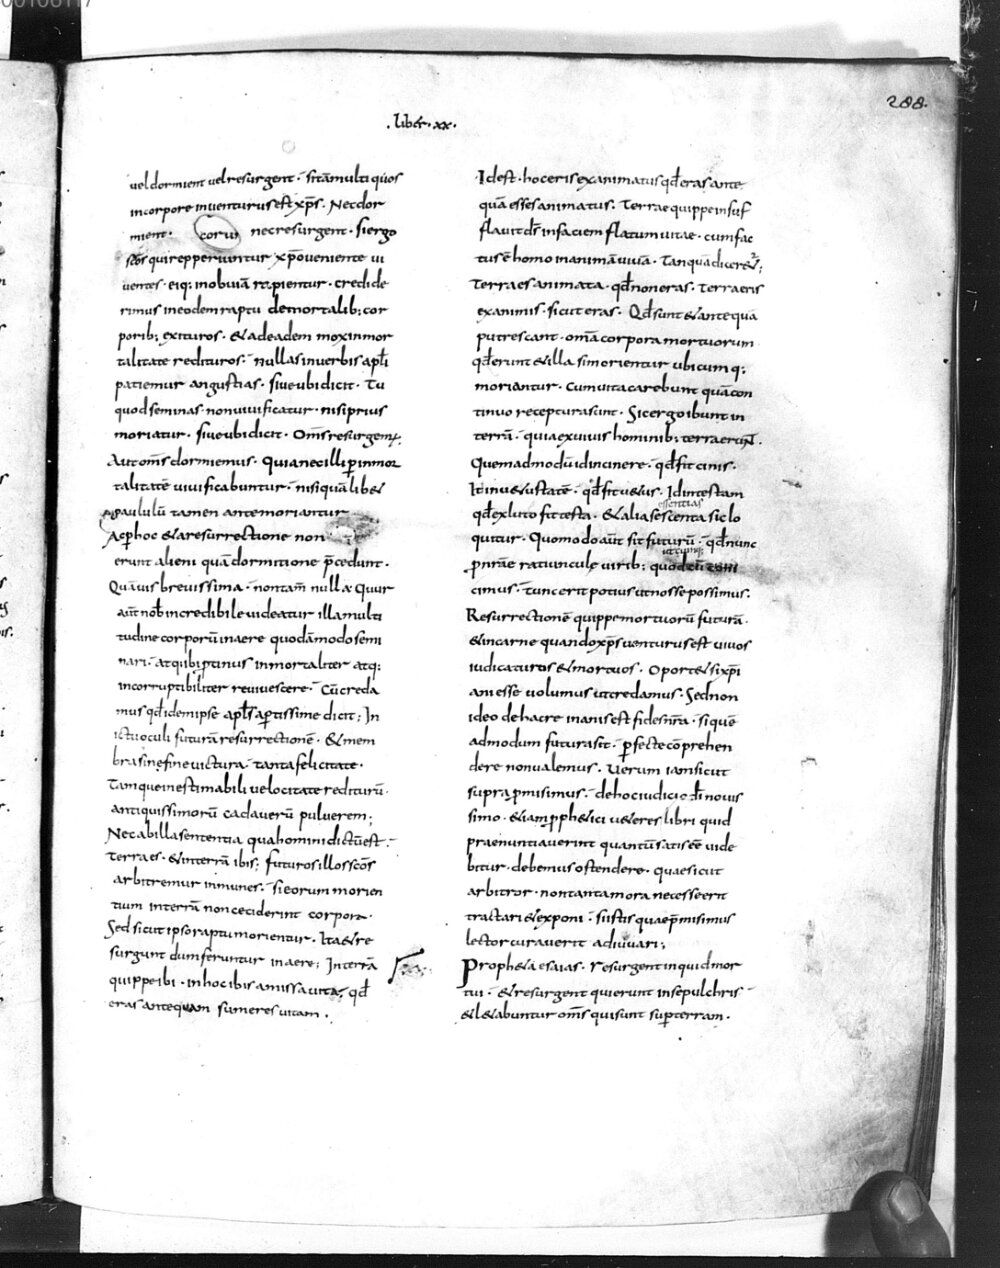 288.
.liber.xx.
uel dormient uel resurgent. si tā multi quos
in corpore inuenturus est xp̄s. Nec dor
mient. corui nec resurgent. si ergo
sc̄os qui repperiuntur xp̄o ueniente ui
uentes. eiq; in obuiā rapientur. credide
rimus in eodem raptu de mortalib; cor
porib; exituros. & ad eadem mox inmor
talitate redituros. nullas in uerbis apl̄i
patiemur angustias. siue ubi dicit. Tu
quod seminas non uiuificatur. nisi prius
moriatur. siue ubi dicit. Om̄s resurgem;.
Aut om̄s dormiemus. Quia nec illi ꝑ inmor
talitatē uiuificabuntur. nisi quālibet
paululū tamen ante moriantur
Ac ꝑ hoc & a resurrectione non
erunt alieni quā dormitione p̄cedunt.
Quāuis breuissima. non tam̄ nulla Cur
aūt nob̄ incredibile uideatur illā multi
tudinē corporū in aere quodāmodo semi
nari. atq; ibi ꝓtinus inmortaliter atq;
incorruptibiliter reuiuescere. Cū creda
mus qd̄ idem ipse apl̄s aꝑtissime dicit; In
ictu oculi futurā resurrectionē. & in em
bra sine fine uictura. tanta felicitate.
Tamque inestimabili uelocitate rediturū.
antiquissimorū cadauerū puluerem;
Nec ab illa sententia qua homini dictū est.
Terra es. & in terrā ibis; futuros illos sc̄os
arbitremur inmunes. si eorum morien
tium in terrā non ceciderint corpora.
Sed sicut ipso raptu morientur. Ita & re
surgunt dum feruntur in aere; In terrā
quippe ibi. in hoc ibis amissa uita; qd̄
eras antequam sumeres uitam.
Id est. hoc eris exanimatus qd̄ eras ante
quā esses animatus. Terrae quippe insuf
flauit dī in faciem flatum uitae. cum fac
tus ē homo in animā uiuā. Tanquā dicer&;
Terra es animata. qd̄ non eras. Terra eris
exanimis. sicut eras. Qd̄ sunt & antequā
putrescant. om̄a corpora mortuorum
qd̄ erunt & illa. si morientur ubicumq;
moriantur. cum uita carebunt quā con
tinuo recepturas̄unt. Sic ergo ibunt in
terrā. quia ex uiuis hominib; terra erunt.
Quemadmodū id in cinere. qd̄ fit cinis.
It in uetustatē. qd̄ fit uetus. Id in testam
essentias
qd̄ ex luto fit testa. & alia sescenta sic lo
quitur. Quomodo aūt sit futurū. qd̄ nunc
utcumq;
pn̄rae ratiuncule uirib; quod cū coni
cimus. tunc erit potius ut nosse possimus.
Resurrectionē quippe mortuorū futurā.
& in carne quando xp̄s uenturus est uiuos
iudicaturos & mortuos. Oport& si xpī
ani esse uolumus ut credamus. Sed non
ideo de hac re inanis est fides nr̄a. si quē
admodum futura sit. ꝑfecte cōprehen
dere non ualemus. Uerum iam sicut
supra ꝓmisimus. de hoc iudicio dī nouis
simo. &iam ꝓph&ici u&eres libri quid
praenuntiauerint quantū satis eē uide
bitur. debemus ostendere. quae sicut
arbitror. non tanta mora necesse erit
tractari & exponi. si istis quae p̄misimus
lector curauerit adiuuari;
Proph&a esaias. resurgent inquid mor
tui. & resurgent qui erunt in sepulchris
& l&abuntur om̄s qui sunt suꝑ terram.